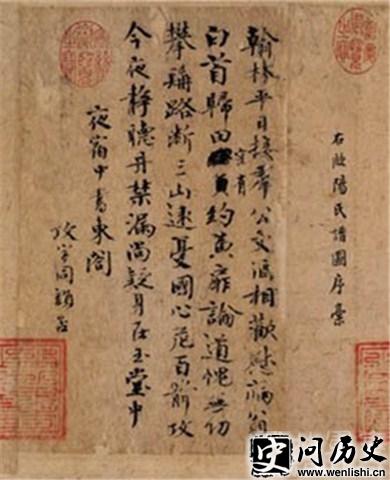 右歐陽氏譜圖序稾
翰林平日接羣公文酒相歡慰病翁
白首歸田空有約黄扉論道愧無功
攀髯路斷三山遠憂國心危百箭攻
今夜静聽丹禁漏尚疑身在玉堂中
夜宿中書東閣
攻字同韻否
问历史
www.wenlishi.cn